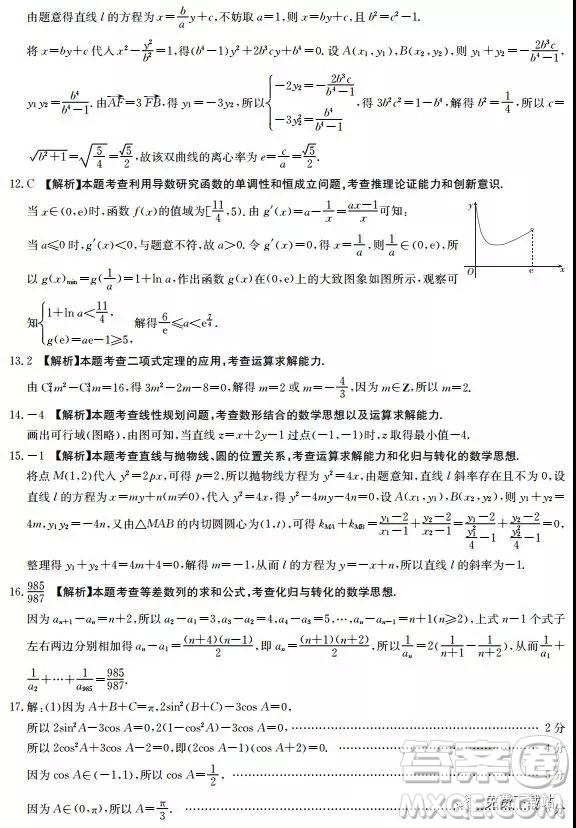 由题意得直线 l 的方程为 x=b/a y+c,不妨取 a=1,则 x=by+c,且 b²=c²-1.
将 x=by+c 代入 x²-y²/b²=1,得(b⁴-1)y²+2b³cy+b⁴=0. 设 A(x₁,y₁),B(x₂,y₂),则 y₁+y₂=-2b³c/(b⁴-1),
y₁y₂=b⁴/(b⁴-1). 由 AF→=3 FB→,得 y₁=-3y₂,所以{-2y₂=-2b³c/(b⁴-1), -3y₂²=b⁴/(b⁴-1), 得 3b²c²=1-b⁴,解得 b²=1/4,所以 c=
√(b²+1)=√(5/4)=√5/2,故该双曲线的离心率为 e=c/a=√5/2.
12.C 【解析】本题考查利用导数研究函数的单调性和恒成立问题,考查推理论证能力和创新意识.
当 x∈(0,e)时,函数 f(x)的值域为[11/4,5). 由 g′(x)=a-1/x=(ax-1)/x可知:
当 a≤0 时,g′(x)<0,与题意不符,故 a>0. 令 g′(x)=0,得 x=1/a,则1/a∈(0,e),所
以 g(x)min=g(1/a)=1+ln a,作出函数 g(x)在(0,e)上的大致图象如图所示,观察可
知{1+ln a<11/4, g(e)=ae-1≥5, 解得6/e≤a<e^(7/4).
y
O
e
x
13.2 【解析】本题考查二项式定理的应用,考查运算求解能力.
由 C₄²m²-C₄¹m=16,得 3m²-2m-8=0,解得 m=2 或 m=-4/3,因为 m∈Z,所以 m=2.
14.-4 【解析】本题考查线性规划问题,考查数形结合的数学思想以及运算求解能力.
画出可行域(图略),由图可知,当直线 z=x+2y-1 过点(-1,-1)时,z 取得最小值-4.
15.-1 【解析】本题考查直线与抛物线、圆的位置关系,考查运算求解能力和化归与转化的数学思想.
将点 M(1,2)代入 y²=2px,可得 p=2,所以抛物线方程为 y²=4x,由题意知,直线 l 斜率存在且不为 0,设
直线 l 的方程为 x=my+n(m≠0),代入 y²=4x,得 y²-4my-4n=0. 设 A(x₁,y₁),B(x₂,y₂),则 y₁+y₂=
4m,y₁y₂=-4n,又由△MAB的内切圆圆心为(1,t),可得 kMA+kMB=(y₁-2)/(x₁-1)+(y₂-2)/(x₂-1)=(y₁-2)/(y₁²/4-1)+(y₂-2)/(y₂²/4-1)=0,
整理得 y₁+y₂+4=4m+4=0,解得 m=-1,从而 l 的方程为 y=-x+n,所以直线 l 的斜率为-1.
16.985/987 【解析】本题考查等差数列的求和公式,考查化归与转化的数学思想.
因为 aₙ₊₁-aₙ=n+2,所以 a₂-a₁=3,a₃-a₂=4,a₄-a₃=5,…,aₙ-aₙ₋₁=n+1(n≥2),上式 n-1 个式子
左右两边分别相加得 aₙ-a₁=(n+4)(n-1)/2,即 aₙ=(n+1)(n+2)/2,所以1/aₙ=2(1/(n+1)-1/(n+2)),从而1/a₁+
1/a₂+…+1/a₉₈₅=985/987.
17.解:(1)因为 A+B+C=π,2sin²(B+C)-3cos A=0,
所以 2sin²A-3cos A=0,2(1-cos²A)-3cos A=0, 2 分
所以 2cos²A+3cos A-2=0,即(2cos A-1)(cos A+2)=0. 4 分
因为 cos A∈(-1,1),所以 cos A=1/2, 5 分
因为 A∈(0,π),所以 A=π/3.
答案圈